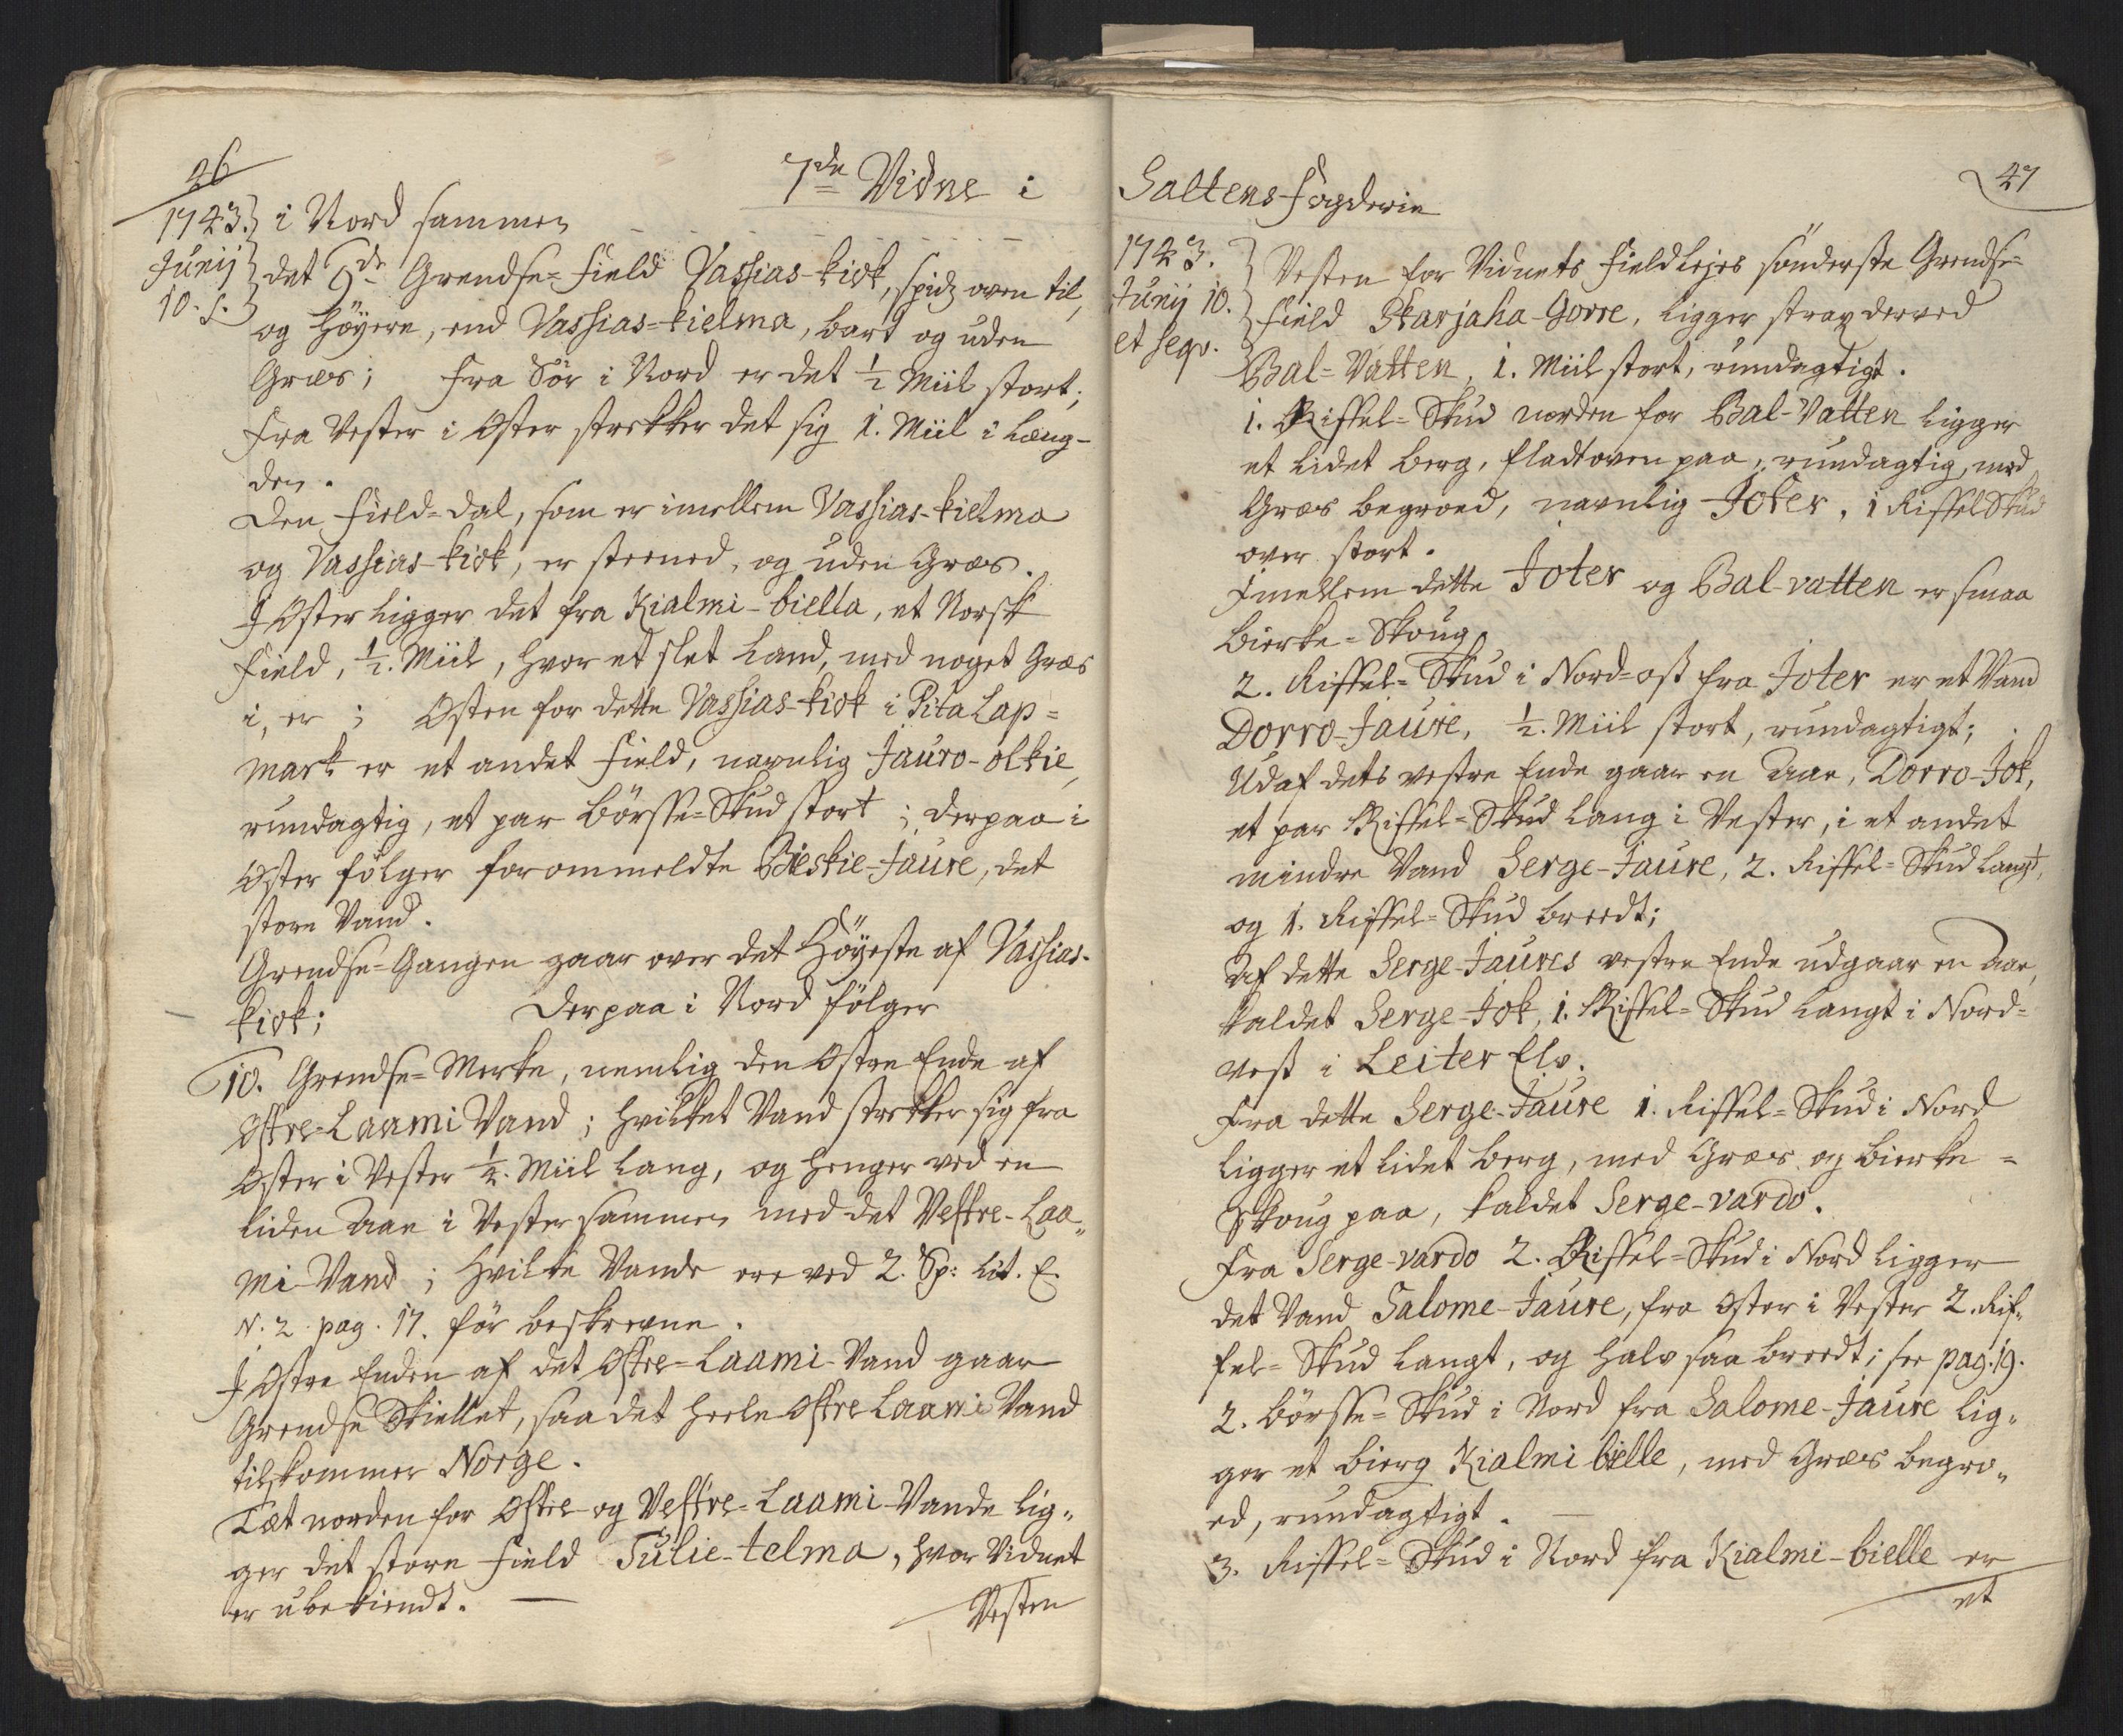 26
7de Vidne i
1743.
Junij
10. s.
i Nord sammen
det 9de Grendse-Field Vassias-kiok, spidz oven til,
og høyere, end Vassias-kielma, bart og uden
Græs; fra Sør i Nord er det ½ Miil stort;
fra Vester i Øster strekker det sig 1. Miil i Læng-
den.
Den Field-Dal, som er imellem Vassias-kielma
og Vassias-kiok, er steened, og uden Græs.
I Øster ligger det fra Kialmi-biella, et Norsk
Field, ½. Miil, hvor et slet Land, med noget Græs
i, er; Østen for dette Vassias-kiok i Pita Lap-
mark er et andet Field, navnlig Jauro-olkie,
rundagtig, et par Børsse-Skud stort; derpaa i
Øster følger forommeldte Bieskie-Jaure, det
store Vand.
Grendse-Gangen gaar over det Høyeste af Vassias-
kiok; Derpaa i Nord følger
10. Grendse-Merke, nemlig den Østre Ende af
Østre-Laami Vand; hvilket Vand strekker sig fra
Øster i Vester ½. Miil lang, og henger ved en
liden Aae i Vester sammen med det Vestre-Laa-
mi-Vand; hvilke Vande ere ved 2. Sp: Lit. E.
N. 2. pag. 17. før beskrevne.
I Østre Enden af det Østre-Laami-Vand gaar
Grendse Skiellet, saa det heele Østre Laami Vand
tilkommer Norge.
Tæt norden for Østre- og Vestre-Laami-Vande lig-
ger det store Field Sulie-telma, hvor Vidnet
er ubekiendt.
Vesten
47
Saltens Fogderie
1743.
Junij 10.
et seqv.
Vesten for Vidnets Fieldlejes sønderste Grendse-
Field Skarjaha-Gorre, ligger strax derved
Bal-Vatten, 1. Miil stort, rundagtigt.
1. Riffel-Skud norden for Bal-Vatten ligger
et lidet Berg, fladt oven paa, rundagtig, med
Græs begroed, navnlig Joter, 1 Riffel Skud
over stort.
Imellem dette Joter og Bal-vatten er smaa
Bierke-Skoug.
2. Riffel-Skud i Nord-ost fra Joter er et Vand
Dorro-Jaure, ½. Miil stort, rundagtigt;
Ud af dets vestre Ende gaar en Aae, Dorro-Jok,
et par Riffel-Skud lang i Vester, i et andet
mindre Vand Serge-Jaure, 2. Riffel-Skud langt,
og 1. Riffel-Skud breedt;
Af dette Serge-Jaures vestre Ende udgaar en Aae,
kaldet Serge-Jok, 1. Riffel-Skud langt i Nord-
vest i Leiter Elv.
Fra dette Serge-Jaure 1. Riffel-Skud i Nord
ligger et lidet Berg, med Græs og Bierke-
Skoug paa, kaldet Serge-vardo.
Fra Serge-vardo 2. Riffel-Skud i Nord ligger
det Vand Salome-Jaure, fra Øster i Vester 2. Rif-
fel-Skud langt, og halv saa breedt; see pag. 19.
2. Børsse-Skud i Nord fra Salome-Jaure lig-
ger et Bierg Kialmi bielle, med Græs begro-
ed, rundagtigt.
3. Riffel-Skud i Nord fra Kialmi-bielle er
et